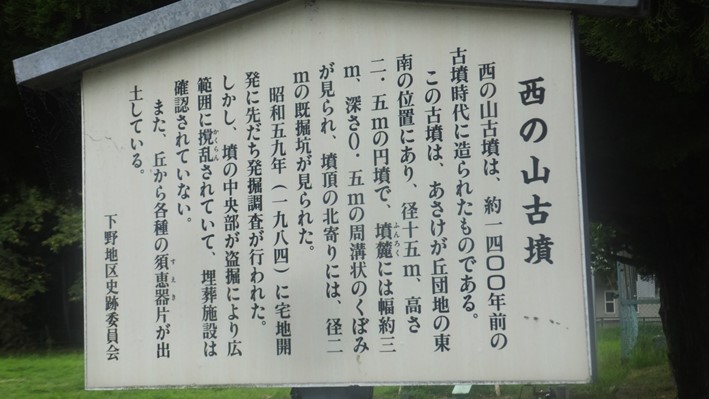 西の山古墳
西の山古墳は、約一四〇〇年前の
古墳時代に造られたものである。
この古墳は、あさけが丘団地の東
南の位置にあり、径十五m、高さ
二・五mの円墳で、墳麓には幅約三
m、深さ〇・五mの周溝状のくぼみ
が見られ、墳頂の北寄りには、径二
mの既掘坑が見られた。
昭和五九年（一九八四）に宅地開
発に先だち発掘調査が行われた。
しかし、墳の中央部が盗掘により広
範囲に攪乱されていて、埋葬施設は
確認されていない。
また、丘から各種の須恵器片が出
土している。
下野地区史跡委員会